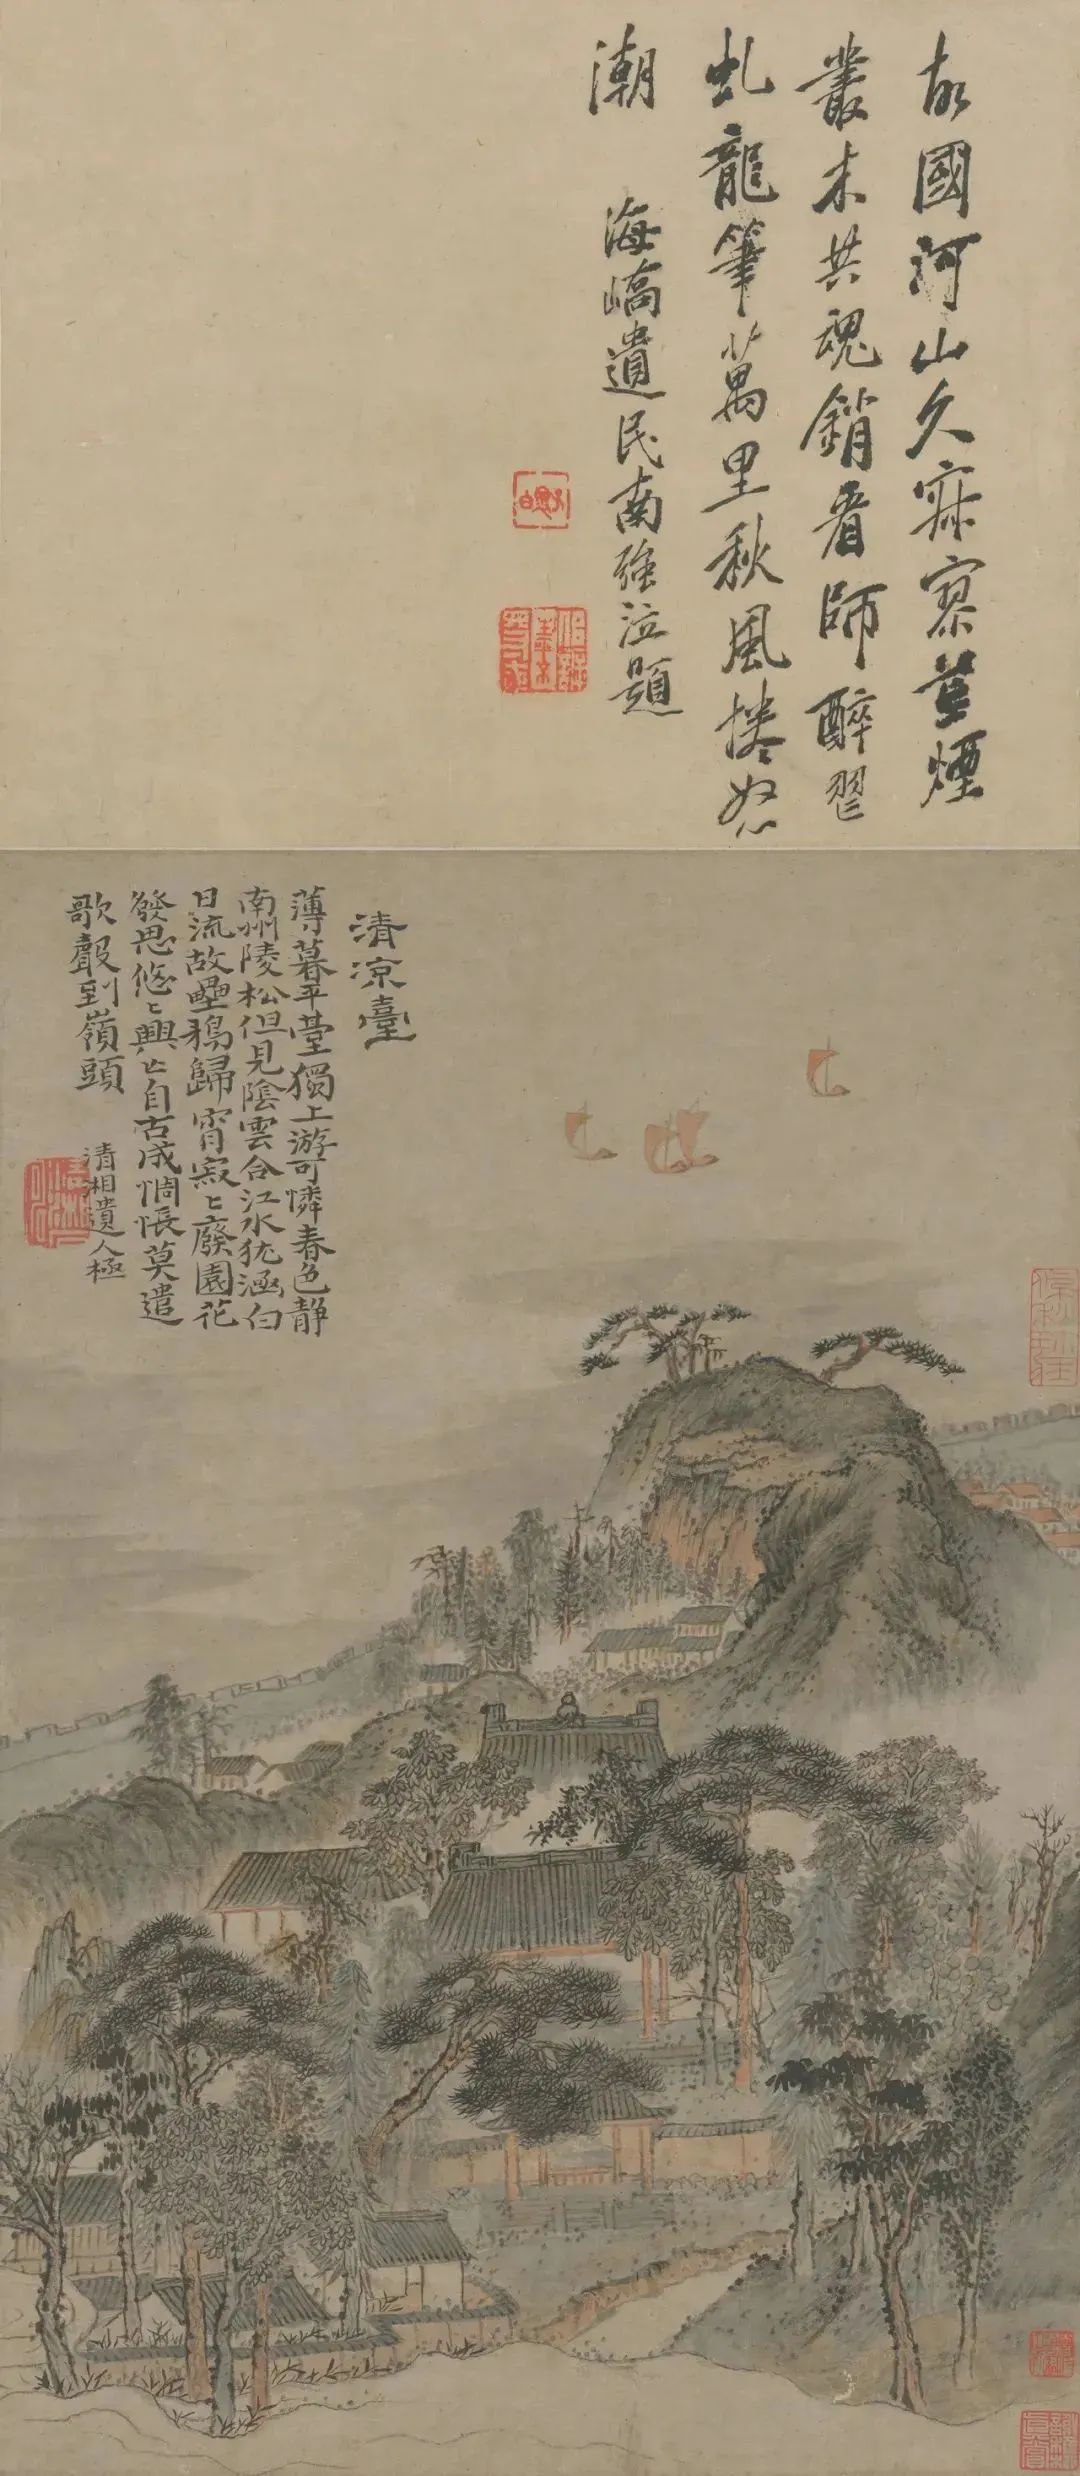 故國河山久寂寥蔓煙
叢未共魂銷看師醉翟
虬龍筆萬里秋風捲怒
潮
海嶠遺民南強泣題
清凉臺
薄暮平臺獨上游可憐春色靜
南州陵松但見陰雲合江水猶涵白
日流故壘鴉歸宵寂〻廢園花
發思悠〻興亡自古成惆悵莫遣
歌聲到嶺頭
清湘遺人極